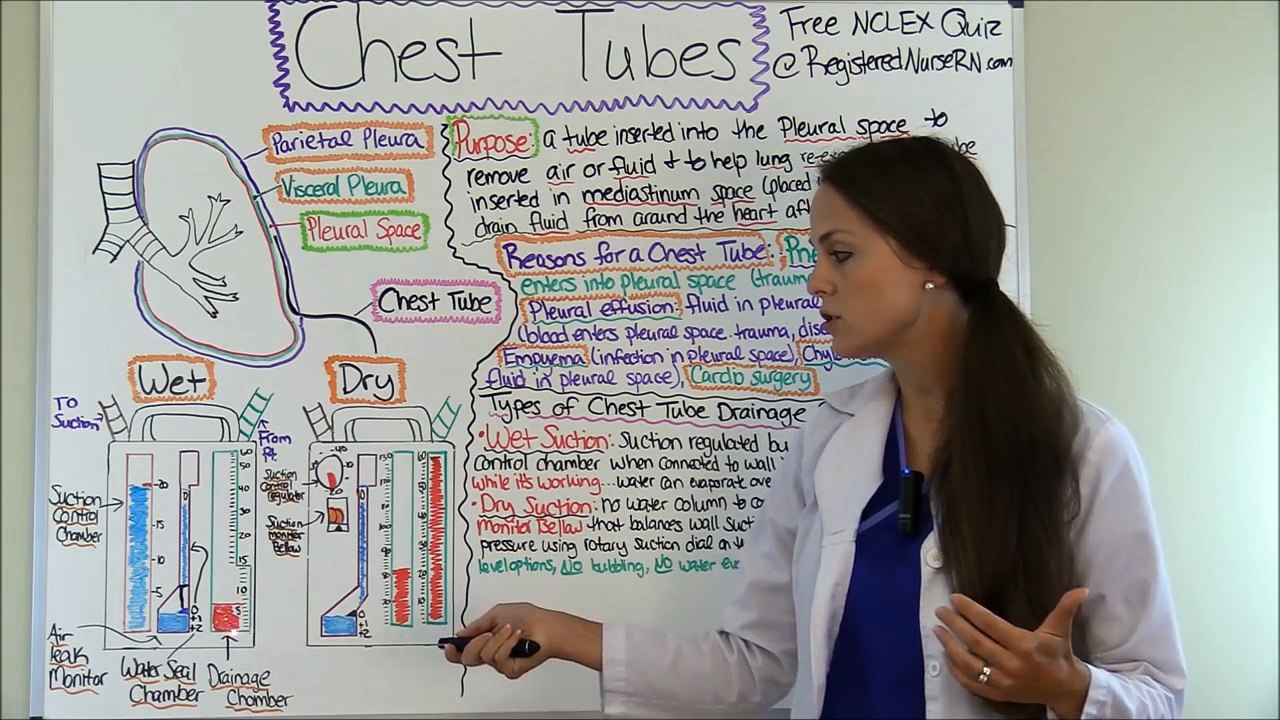 Chest Tubes
Free NCLEX Quiz
@RegisteredNurseRN.com
Parietal Pleura
Visceral Pleura
Pleural Space
Chest Tube
Purpose: a tube inserted into the Pleural space to
remove air or fluid + to help lung
inserted in mediastinum space (placed
drain fluid from around the heart
Reasons for a Chest Tube:
enters into pleural space
Pleural effusion: fluid in pleural
(blood enters pleural space. trauma,
Empyema (infection in pleural space),
fluid in pleural space), Cardio surgery
Types of Chest Tube Drainage
• Wet Suction: suction regulated by
control chamber when connected to wall
while it's working...water can evaporate
• Dry Suction: no water column to
monitor Bellow that balances wall
pressure using rotary suction dial on
level options, No bubbling, No water
Wet
TO
Suction
From
Pt.
Suction
Control
Chamber
-20
-15
-10
-5
0
+1
+2
60
50
40
30
20
15
10
5
Air
leak
Monitor
Water Seal
Chamber
Drainage
Chamber
Dry
Suction
Control
regulator
Suction
monitor
Bellow
-40
-10
20
0
+1
+2